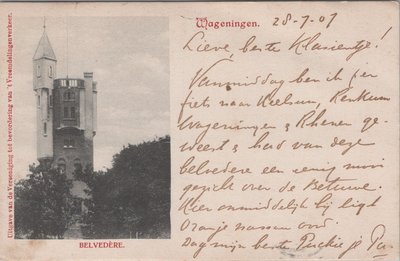 Wageningen. 28-7-07
Lieve, beste Klasientje!
Vanmiddag ben ik per
fiets naar Heelsum, Renkum
Wageningen & Rhenen ge-
weest & had van deze
belvedere een eenig mooi
gezicht over de Betuwe.
Hier onmiddelijk bij ligt
Oranje nassau oord
Dag mijn beste
BELVEDÈRE.
Uitgave van de Vereeniging tot bevordering van 't Vreemdelingenverkeer.